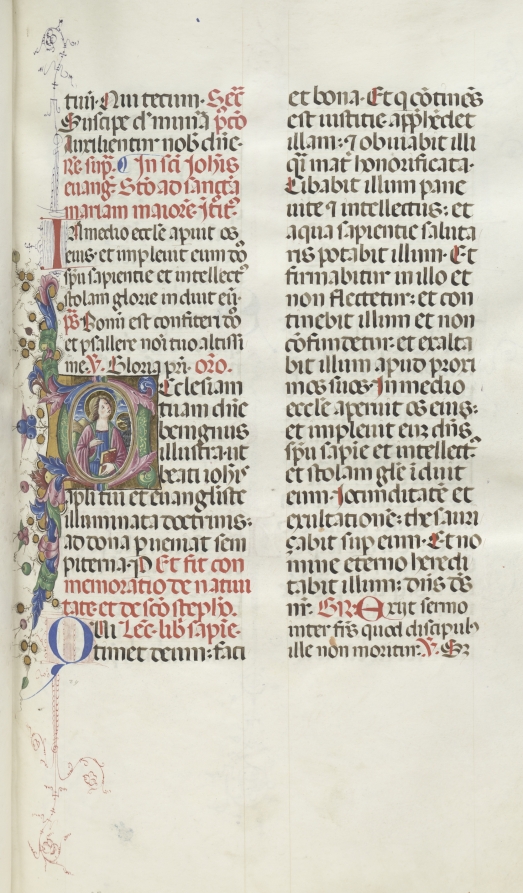 tuũ· Qui tecum· Secͥ
Suscipe dñe munᷓa p̃co
Auxilientur nobͥ dñe·
Re· sup̃· In sci Iohͥs
euangͤ· Sto ad sanctã
mariam maiorẽ· Itͥus
In medio eccłe apuit os
eius· et impleuit eum dñs
spũ sapientie et intellectꝰ
stolam glorie induit eũ·
p̃s Bonũ est confiteri dño
et psallere noĩ tuo altissi
me· V̷· Gloria pr̃i· oro·
Ecclesiam
tuam dñe
benignus
illustra· ut
beati iohͥs
apłi tui et euangliste
illuminata doctrinis·
ad dona pueniat sem
piterna· P Et fit con
memoratio de natiui
tate· et de scõ stephão·
Qui Lẽc· libͥ sapiẽ·
timet deum· faci
et bona· Et q cõtinẽs
est iusticie app̃hẽdet
illam· ⁊ obuiabit illi
q̃i mat̃ honorificata·
Cibabit illum pane
uite ⁊ intellectus· et
aqua sapientie saluta
ris potabit illum· Et
firmabitur in illo et
non flectetur· et con
tinebit illum et non
cõfundetur· et exalta
bit illum apud proxi
mos suos· In medio
eccłe aperuit os eius·
et impleuit eũ dñs
spũ sapiẽ et intellectꝰ
et stolam głe iduit
eum· Iocunditatẽ et
exultationẽ· thesauri
çabit sup eum· Et no
mine eterno heredi
tabit illum· dñs dẽs
nr̃· GR Exijt sermo
inter fr̃s quod discipulꝰ
ille non moritur· V̷· S꜔